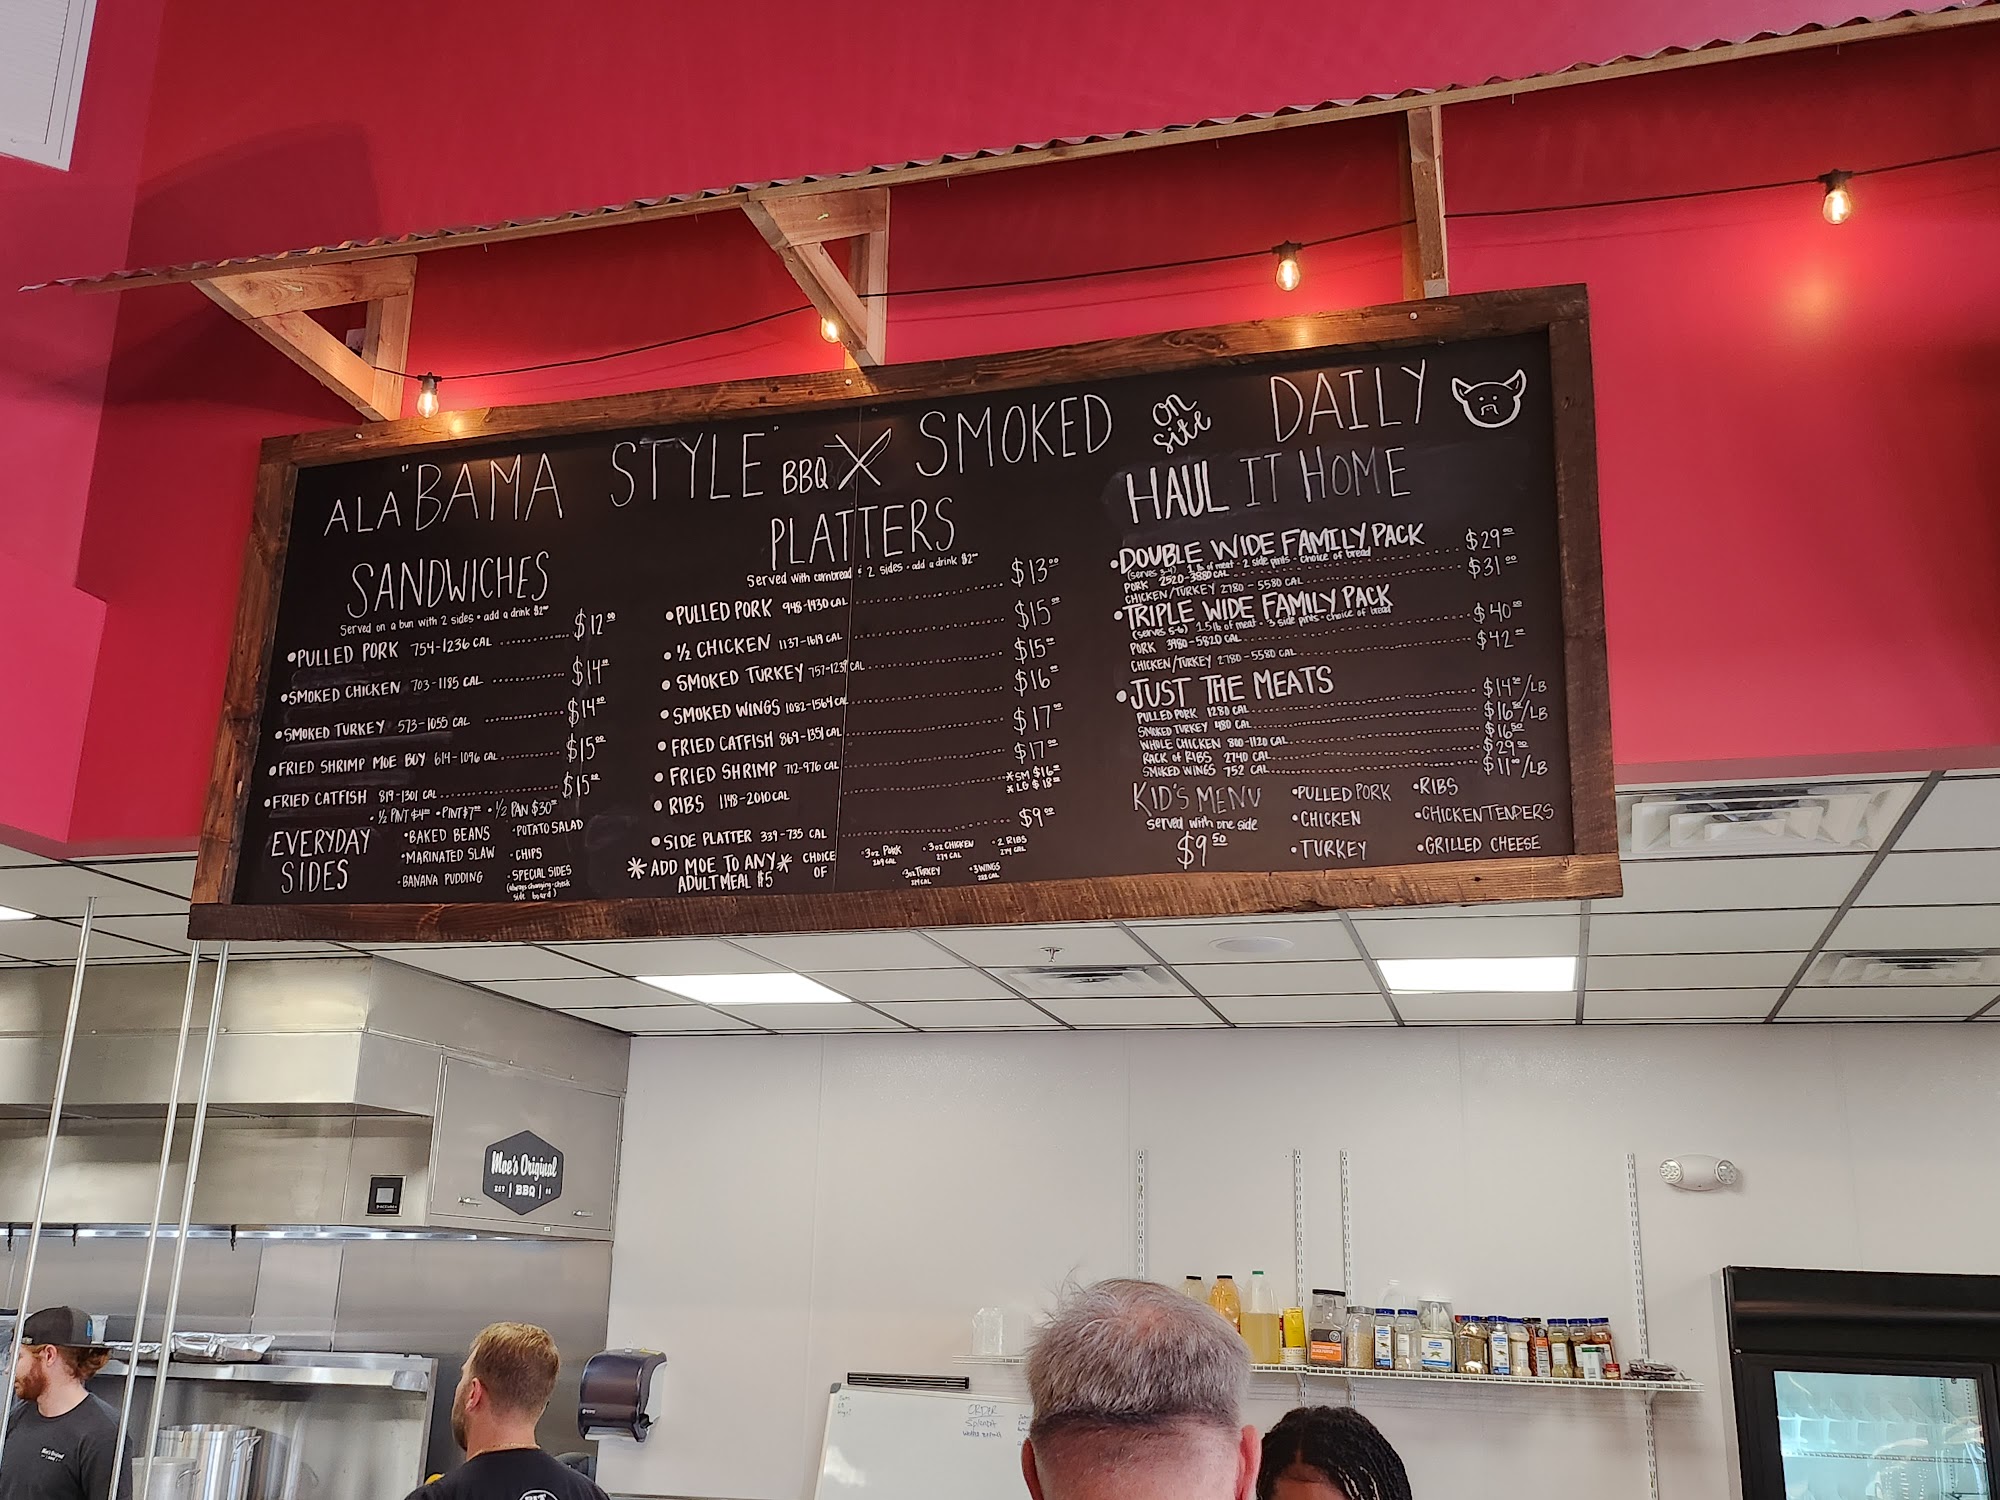 ALA"BAMA STYLE" BBQ SMOKED on site DAILY
SANDWICHES
Served on a bun with 2 sides · add a drink $2⁰⁰
•PULLED PORK 754-1236 CAL $12⁰⁰
•SMOKED CHICKEN 703-1185 CAL $14⁰⁰
•SMOKED TURKEY 573-1055 CAL $14⁰⁰
•FRIED SHRIMP MOE BOY 614-1096 CAL $15⁰⁰
•FRIED CATFISH 819-1301 CAL $15⁰⁰
EVERYDAY SIDES
•½ PINT $4⁰⁰ •PINT $7⁰⁰ •½ PAN $30⁰⁰
•BAKED BEANS •POTATO SALAD
•MARINATED SLAW •CHIPS
•BANANA PUDDING •SPECIAL SIDES
(always changing-check side board)
PLATTERS
Served with cornbread & 2 sides · add a drink $2⁰⁰
•PULLED PORK 948-1430 CAL $13⁰⁰
•½ CHICKEN 1137-1619 CAL $15
•SMOKED TURKEY 757-1239 CAL $15
•SMOKED WINGS 1082-1564 CAL $16
•FRIED CATFISH 869-1351 CAL $17
•FRIED SHRIMP 712-976 CAL $17
•RIBS 1148-2010 CAL *SM $16 *LG $18
•SIDE PLATTER 339-735 CAL $9
*ADD MOE TO ANY* ADULT MEAL $5
CHOICE OF
•3oz PORK •3oz CHICKEN •2 RIBS
•3oz TURKEY •3 WINGS
HAUL IT HOME
•DOUBLE WIDE FAMILY PACK
(serves 3-4) 1 lb of meat · 2 side pints · choice of bread
PORK 2520-3880 CAL $29⁰⁰
CHICKEN/TURKEY 2780-5580 CAL $31⁰⁰
•TRIPLE WIDE FAMILY PACK
(serves 5-6) 1.5 lb of meat · 3 side pints · choice of bread
PORK 3980-5820 CAL $40
CHICKEN/TURKEY 2780-5580 CAL $42
•JUST THE MEATS
PULLED PORK 1280 CAL $14⁵⁰/LB
SMOKED TURKEY 480 CAL $16⁵⁰/LB
WHOLE CHICKEN 800-1120 CAL $16⁵⁰
RACK OF RIBS 2740 CAL $29⁰⁰
SMOKED WINGS 752 CAL $11⁰⁰/LB
KID'S MENU
served with one side
$9⁵⁰
•PULLED PORK •RIBS
•CHICKEN •CHICKEN TENDERS
•TURKEY •GRILLED CHEESE
Moe's Original
EST | BBQ |
ORDER